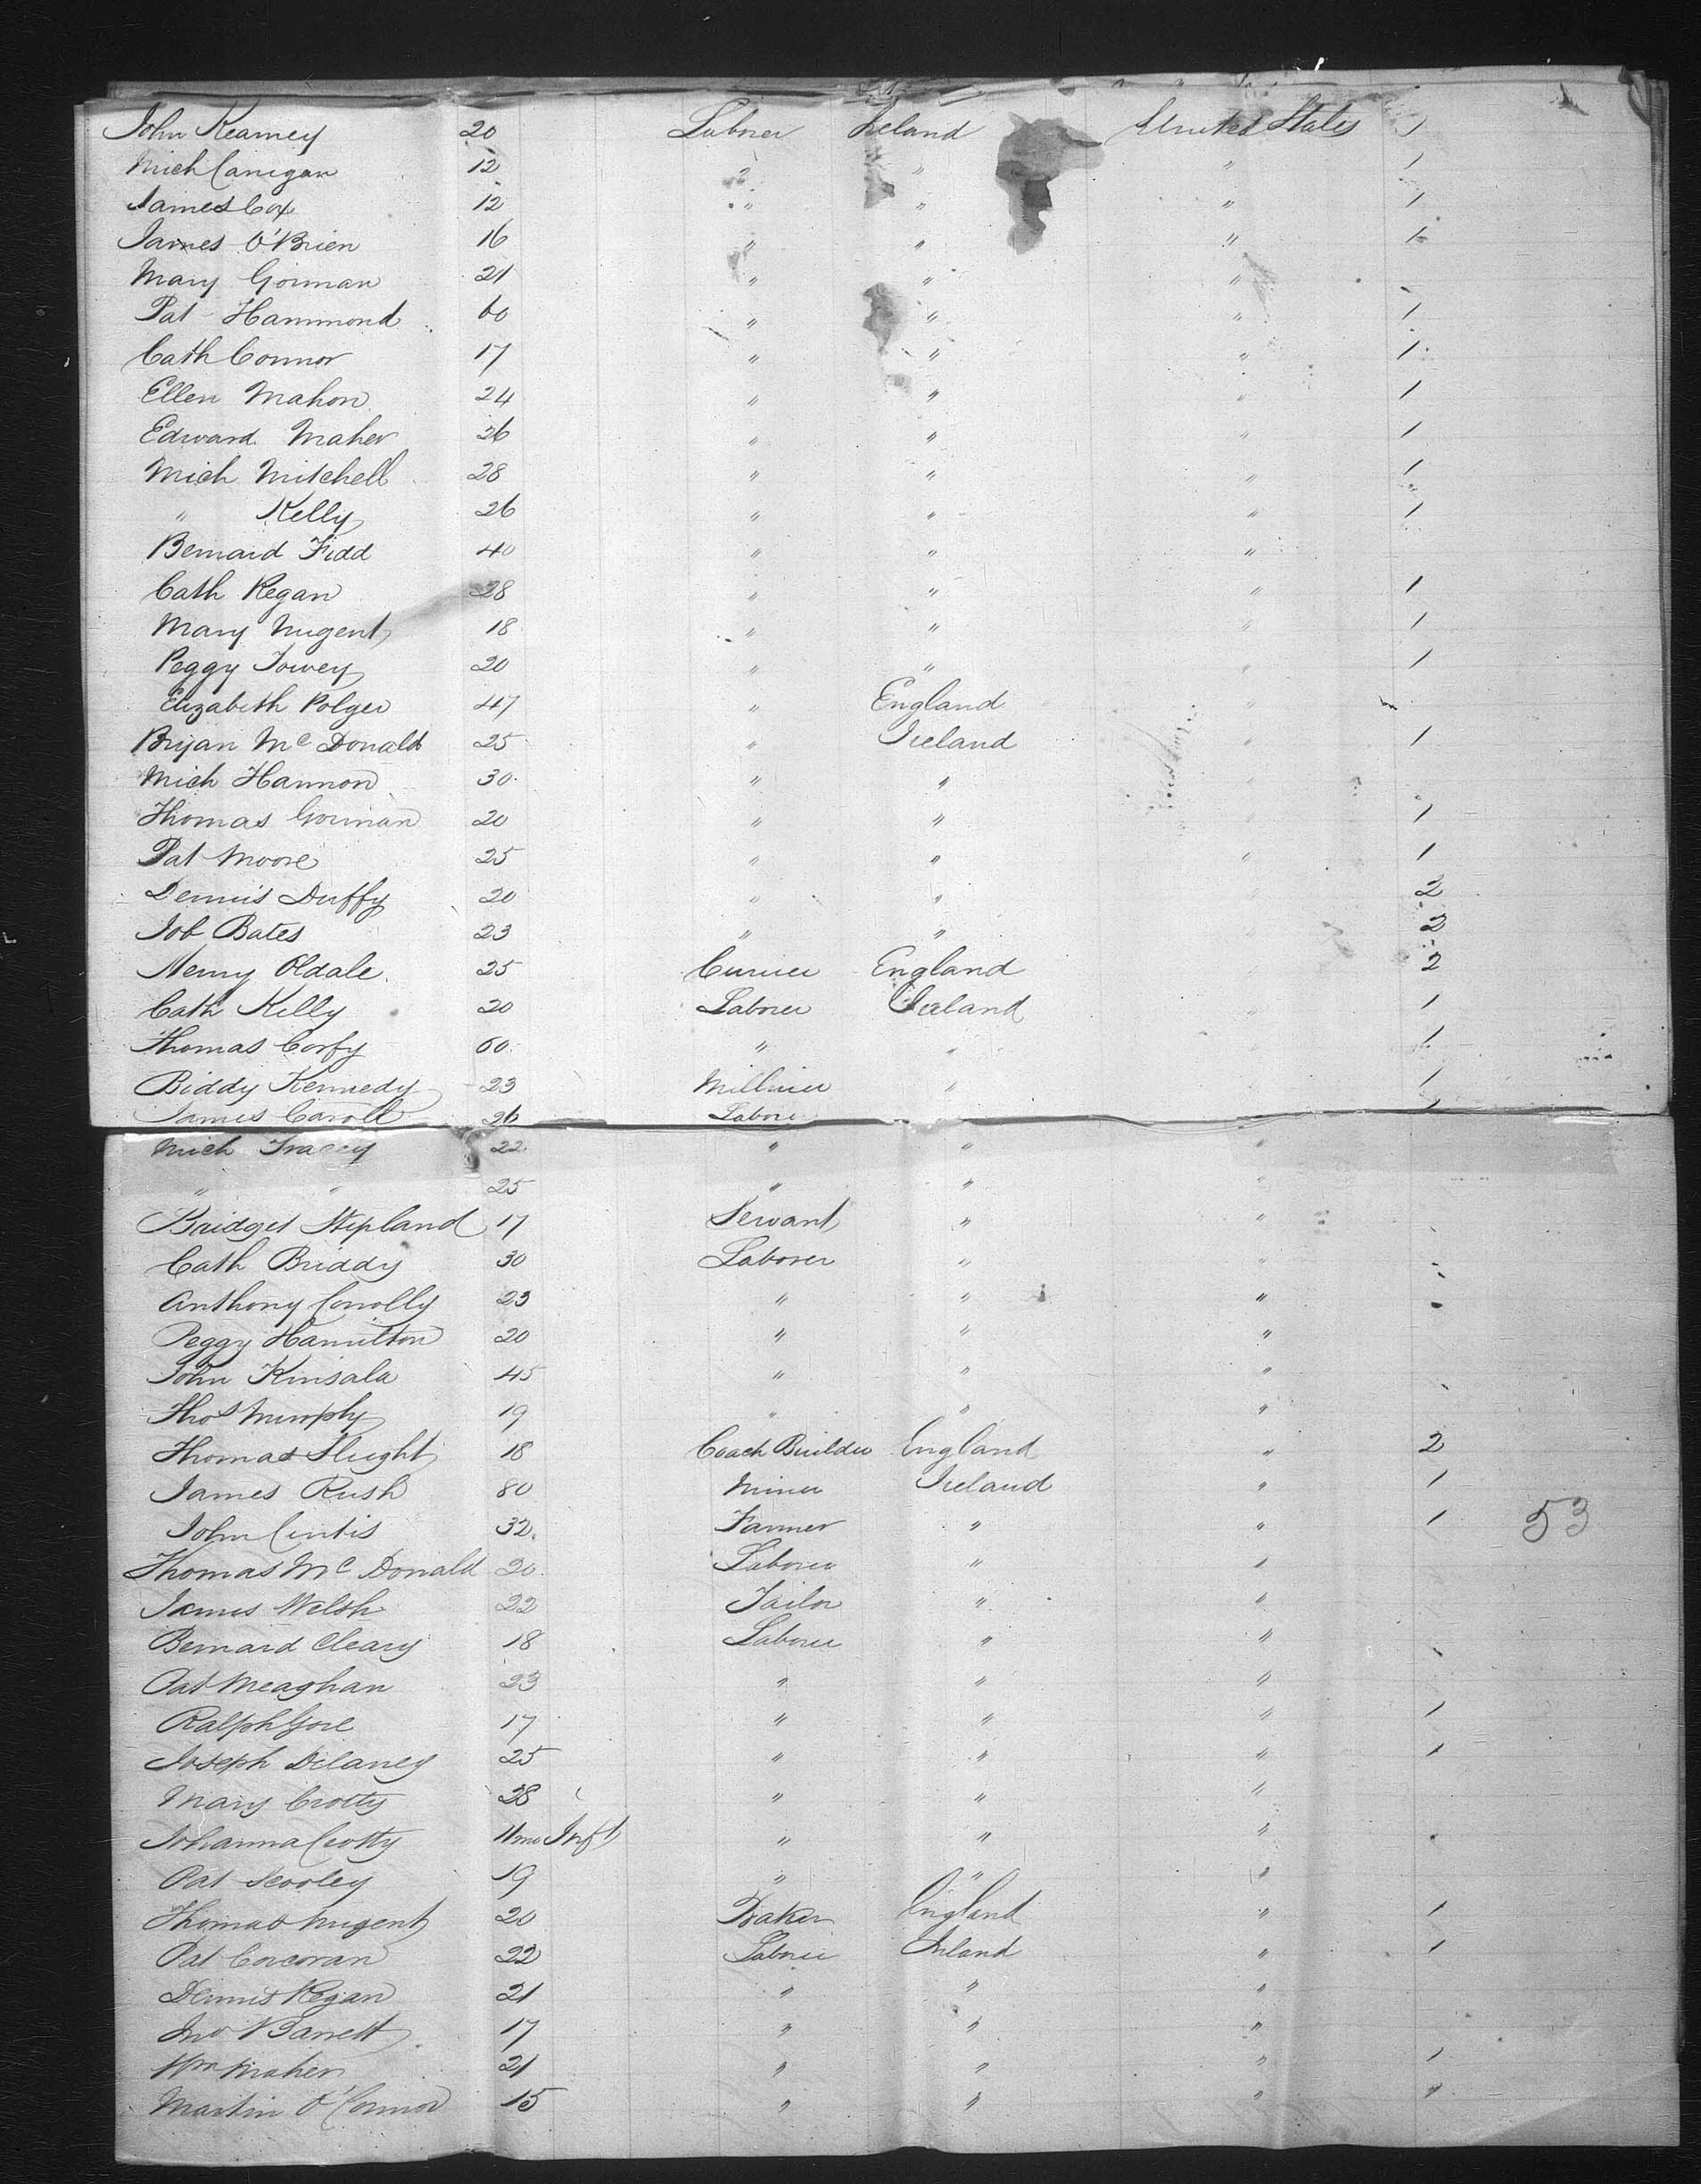 John Kearney 20 Laborer Ireland United States 1
Mich Canigan 12 " " " 1
James Cox 12 " " " 1
James O'Brien 16 " " " 1
Mary Gorman 21 " " "
Pat Hammond 60 " " " 1
Cath Connor 17 " " " 1
Ellen Mahon 24 " " " 1
Edward Maher 26 " " " 1
Mich Mitchell 28 " " " 1
" Kelly 26 " " " 1
Bernard Fidd 40 " " "
Cath Regan 28 " " " 1
Mary Nugent 18 " " " 1
Peggy Towey 20 " " " 1
Elizabeth Polger 47 " England "
Bryan Mc Donald 25 " Ireland " 1
Mich Hannon 30 " " "
Thomas Gorman 20 " " " 1
Pat Moore 25 " " " 1
Dennis Duffy 20 " " 2
Job Bates 23 " " 2
Henry Oldale 25 Currier England 2
Cath Kelly 20 Laborer Ireland " 1
Thomas Corfy 60 " " 1
Biddy Kennedy 23 Milliner " 1
James Caroll 26 Labore 1
Mich Tracey 22 " " "
" " 25 " " "
Bridget Stepland 17 Servant " "
Cath Briddy 30 Laborer " "
Anthony Conolly 23 " " "
Peggy Hamilton 20 " " "
John Kinsala 45 " " "
Thos Murphy 19 " " "
Thomas Slught 18 Coach Builder England " 2
James Rush 80 Miner Ireland " 1
John Curtis 32 Farmer " " 1 53
Thomas Mc Donald 20 Laborer " "
James Welsh 22 Tailor " "
Bernard Cleary 18 Laborer " "
Pat Meaghan 23 " " "
Ralph Gore 17 " " " 1
Joseph Delaney 25 " " " 1
Mary Crotty 28 " " "
Johanna Crotty 11mo Inft " " "
Pat Scooley 19 " " "
Thomas Nugent 20 Baker England " 1
Pat Corcoran 22 Laborer Ireland " 1
Dennis Regan 21 " " "
Jno Barrett 17 " " "
Wm Maher 21 " " " 1
Martin O'Connor 15 " " " "